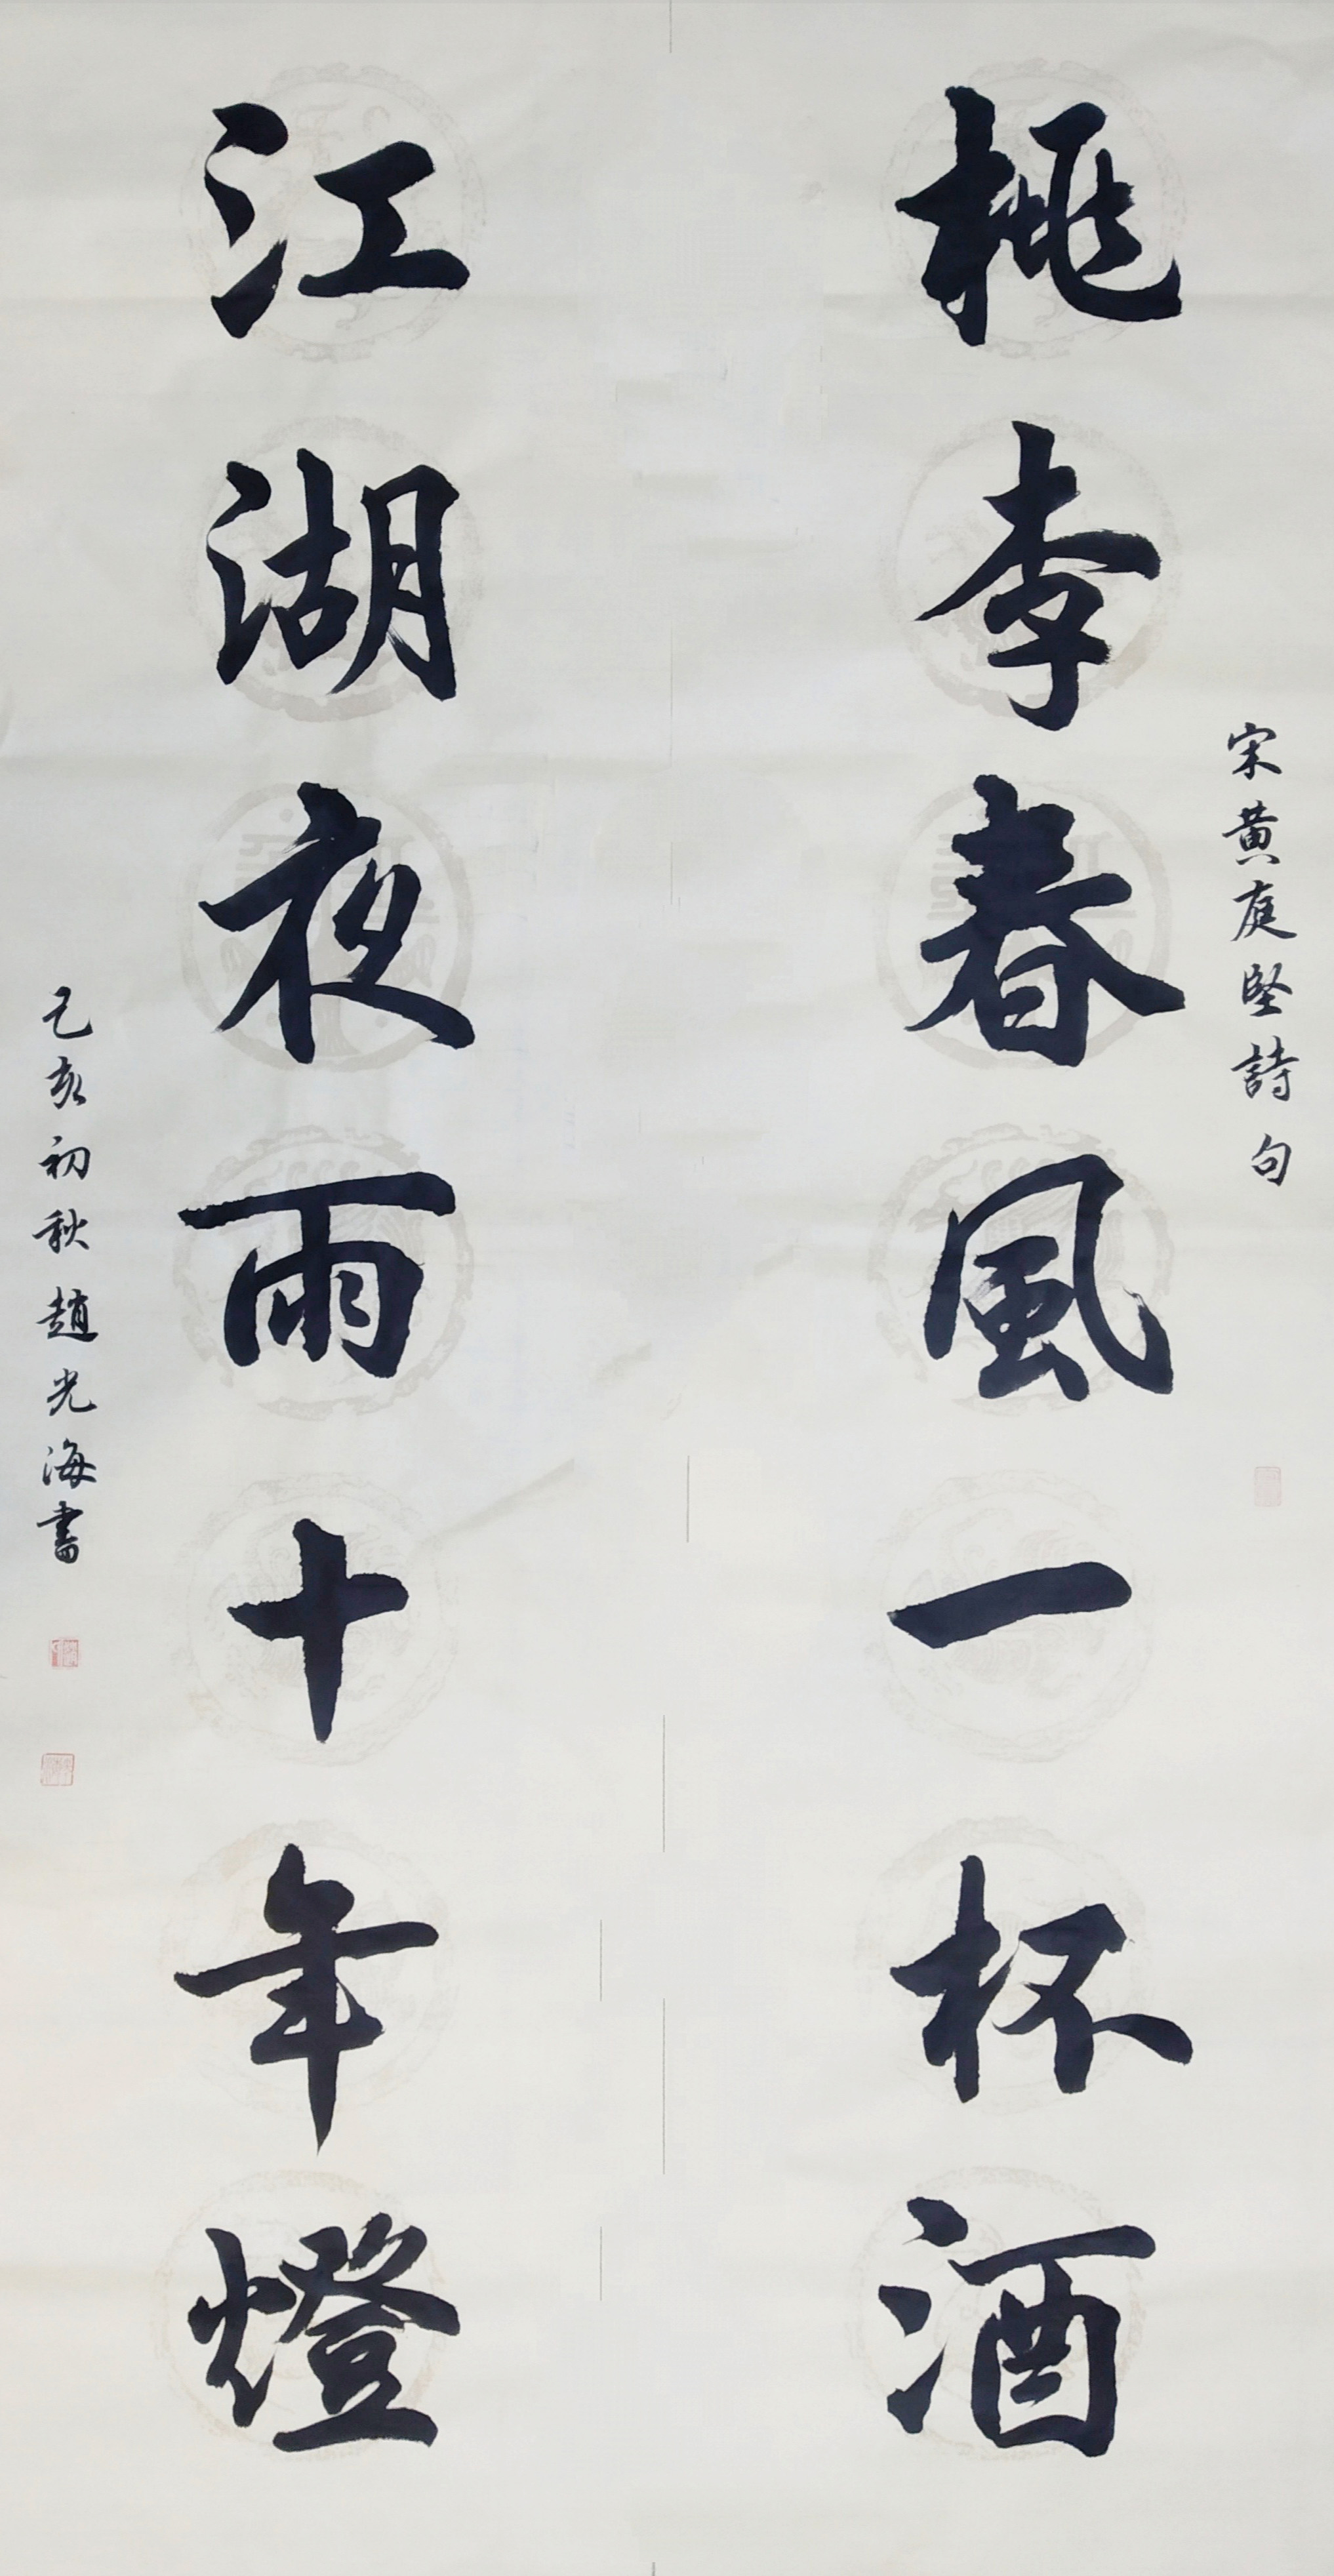 宋黃庭堅詩句
桃李春風一杯酒
江湖夜雨十年燈
己亥初秋趙光海書